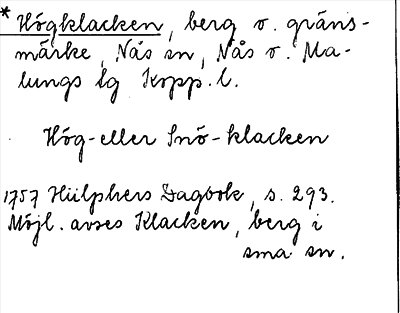 * Högklacken, berg o. gräns-
märke, Nås sn, Nås o. Ma-
lungs tg Kopp. l.
Hög- eller Snö-klacken
1757 Hülphers Dagbok, s. 293.
Möjl. avses Klacken, berg i
sma sn.